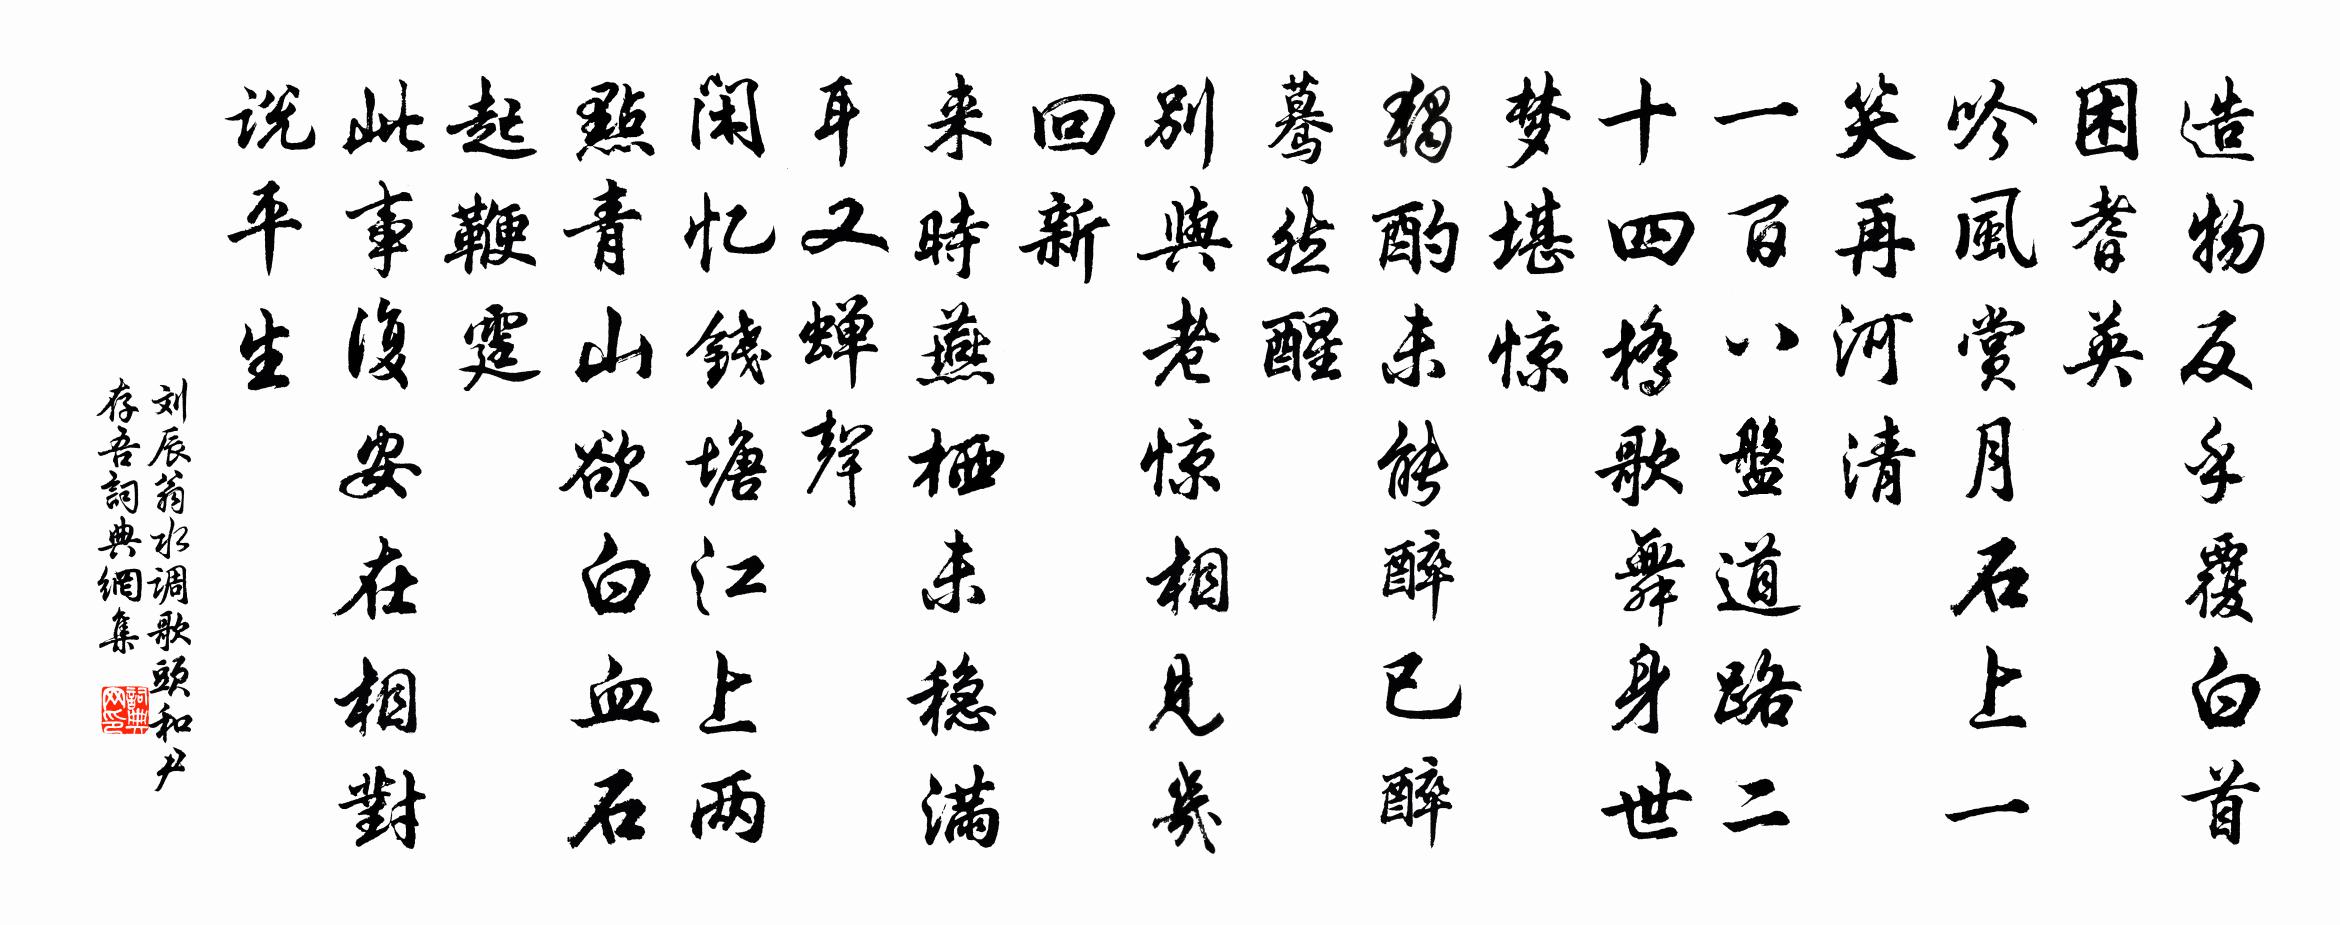 造物反乎覆白首
困耆英
吟風赏月石上一
笑再河清
一百八盤道路二
十四橋歌舞身世
梦堪惊
独酌未能醉已醉
蓦然醒
别與老惊相見幾
回新
来時燕栖未稳满
耳又蝉聲
闲忆錢塘江上两
點青山欲白血石
起鞭霆
此事復安在相對
说平生
刘辰翁水调歌頭和尹
存吾詞典網集
詞典网印